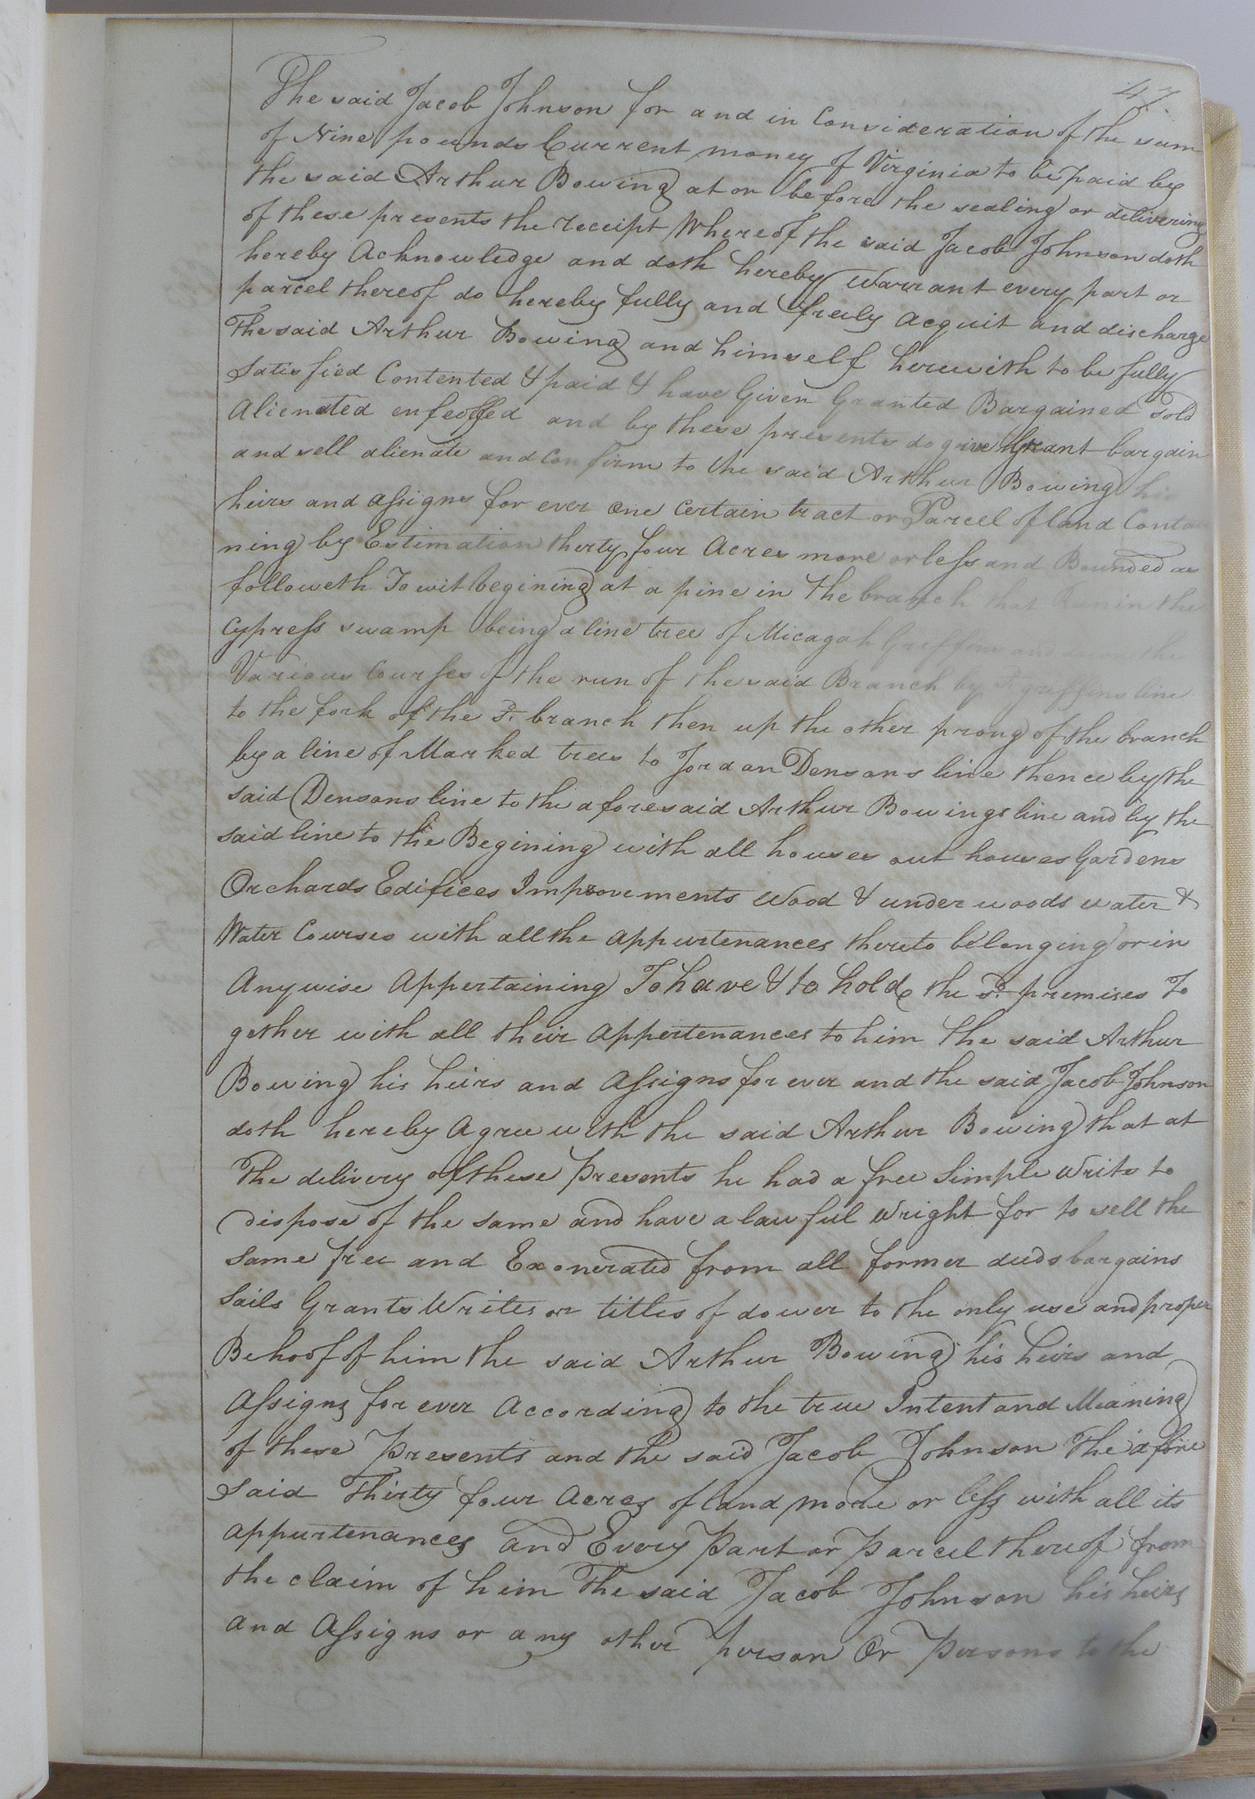 47.
The said Jacob Johnson for and in Consideration of the sum
of Nine pounds Current money of Virginia to be paid by
the said Arthur Bowing at or before the sealing or delivering
of these presents the receipt Whereof the said Jacob Johnson doth
hereby Acknowledge and doth hereby warrant every part or
parcel thereof do hereby fully and freely acquit and discharge
The said Arthur Bowing and himself herewith to be fully
Satisfied Contented & paid & have Given Granted Bargained Sold
Alienated enfeoffed and by these presents do give Grant bargain
and sell alienate and Confirm to the said Arthur Bowing his
heirs and assigns for ever one certain tract or Parcel of land Contai
ning by Estimation thirty four Acres more or less and Bounded as
followeth To wit begining at a pine in the branch that Runin the
Cypress swamp being a line tree of Micagah Griffins and the
Various Courses of the run of the said Branch by griffins line
to the fork of the Sd. branch then up the other prong of the branch
by a line of Marked trees to Jordan Densons line thence by the
said Densons line to the aforesaid Arthur Bowings line and by the
said line to the Begining with all houses out houses Gardens
Orchards Edifices Improvements Wood & under woods water &
Water Courses with all the appurtenances thereto belonging or in
Anywise Appertaining To have & to hold the Sd. premises To
gether with all their appertenances to him the said Arthur
Bowing his heirs and Assigns for ever and the said Jacob Johnson
doth hereby Agree with the said Arthur Bowing that at
The delivery of these presents he had a free Simple Write to
dispose of the same and have a lawful Wright for to sell the
same free and Exonerated from all former deeds bargains
Sails Grants Writes or titles of dower to the only use and proper
Behoof of him the said Arthur Bowing his heirs and
Assigns for ever According to the true Intent and Meaning
of these Presents and the said Jacob Johnson the afore
said Thirty four Acres of land more or less with all its
appurtenances and Every Part or Parcel thereof from
the claim of him The said Jacob Johnson his heirs
and Assigns or any other person Or Persons to the